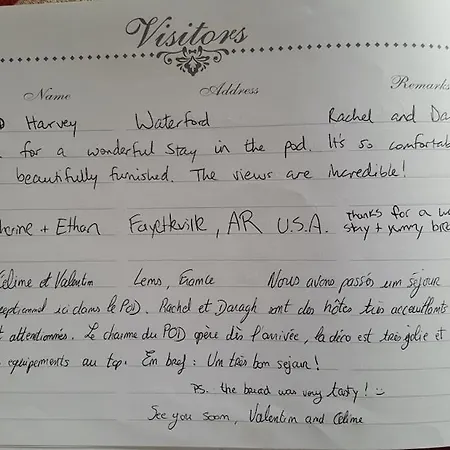 Visitors
Name Address Remarks
Harvey Waterford Rachel and Da
for a wonderful stay in the pod. It's so comfortab
beautifully furnished. The views are incredible!
erine + Ethan Fayetteville, AR U.S.A. Thanks for a w
stay + yummy bre
Céline et Valentin Lens, France Nous avons passés un séjour
exceptionnel ici dans le POD. Rachel et Daragh sont des hôtes très accueillants
attentionnés. Le charme du POD opère dès l'arrivée, la déco est très jolie et
equipements au top. En bref : Un très bon séjour!
PS. the bread was very tasty! :)
See you soon, Valentin and Céline